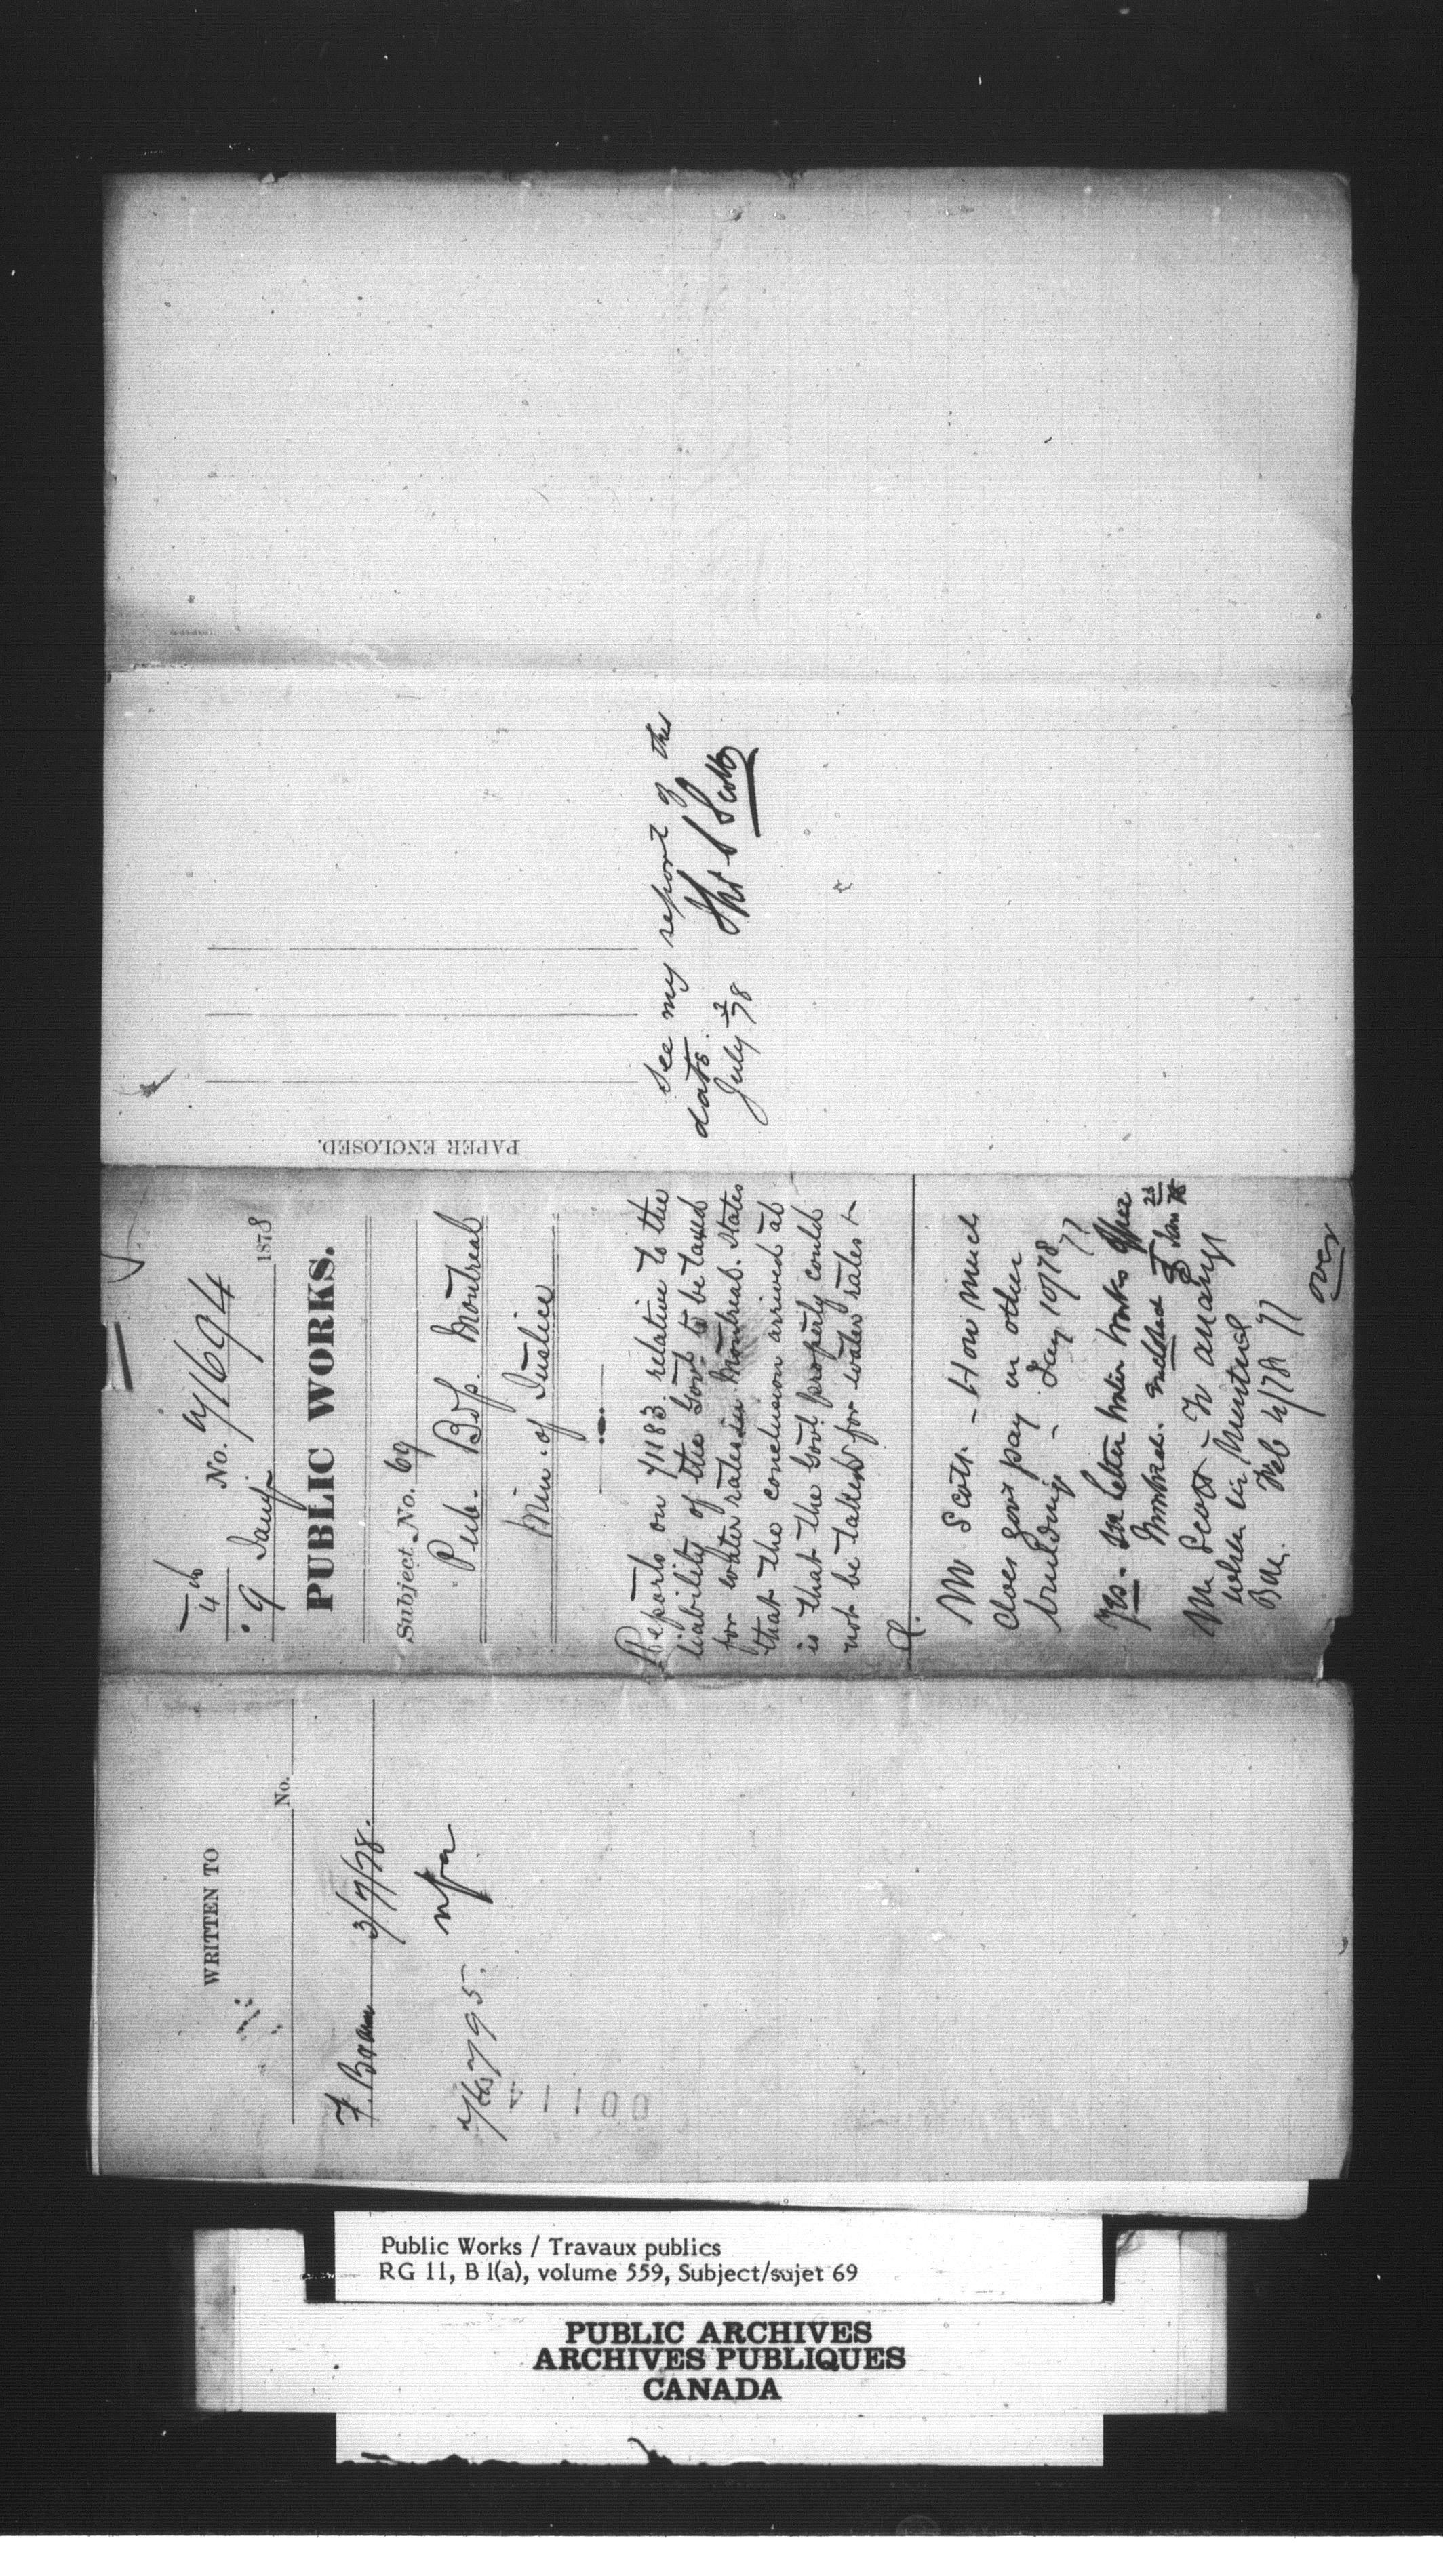 4th
9 Jany 1878
No. 71694
PUBLIC WORKS.
Subject No. 69
Pub. Bdgs. Montreal
Min. of Justice
Reports on 71183 relative to the
liability of the Govt. to be taxed
for water rates in Montreal. States
that the conclusion arrived at
is that the Govt. property could
not be taken for water rates &
Mr Scott - How much
does Govt pay in other
buildings - Jany 10/78
Yes. See letter Water Works Office
Montreal. enclosed Jan 23/78
Mr Scott - To arrange
when in Montreal
Feb 4/78
over
PAPER ENCLOSED.
See my report of this
date.
July 2/78 Thos S Scott
WRITTEN TO
No.
F. Braun 3/7/78.
76795. nfa
41100
Public Works / Travaux publics
RG 11, B 1(a), volume 559, Subject/sujet 69
PUBLIC ARCHIVES
ARCHIVES PUBLIQUES
CANADA